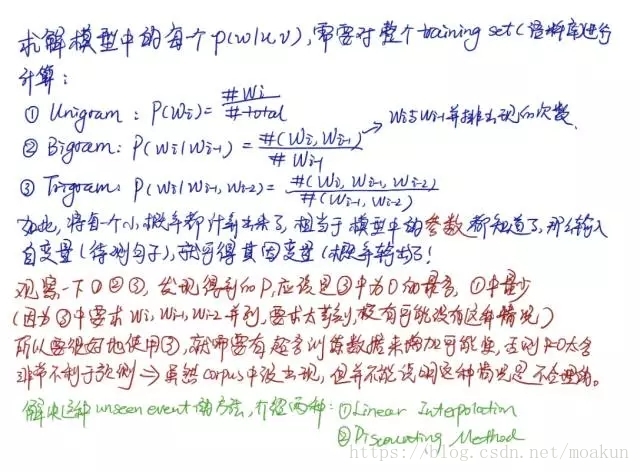 求解模型中的每个p(w|u,v),需要对整个training set(语料库)进行
计算:
① Unigram: P(Wi)= #Wi / #total
② Bigram: P(Wi|Wi-1) = #(Wi, Wi-1) / #Wi-1 → Wi与Wi-1并排出现的次数.
③ Trigram: P(Wi|Wi-1,Wi-2)= #(Wi, Wi-1, Wi-2) / #(Wi-1, Wi-2)
如此,将每一个小概率都计算出来了,相当于模型中的参数都知道了,那么输入
自变量(待测句子),就可得其因变量(概率输出)了!
观察一下①②③,发现得到的P,应该是③中为0的最多,①中最少
(因为③中要求Wi, Wi-1, Wi-2并列,要求太苛刻,极有可能没有这种情况)
所以要很好地使用③,就需要有超多训练数据来增加可能性,否则P=0太多
非常不利于预测 → 虽然corpus中没出现,但并不能说明这种情况是不合理的。
解决这种unseen event的方法,介绍两种: ①Linear Interpolation
②Discounting Method
https://blog.csdn.net/moakun